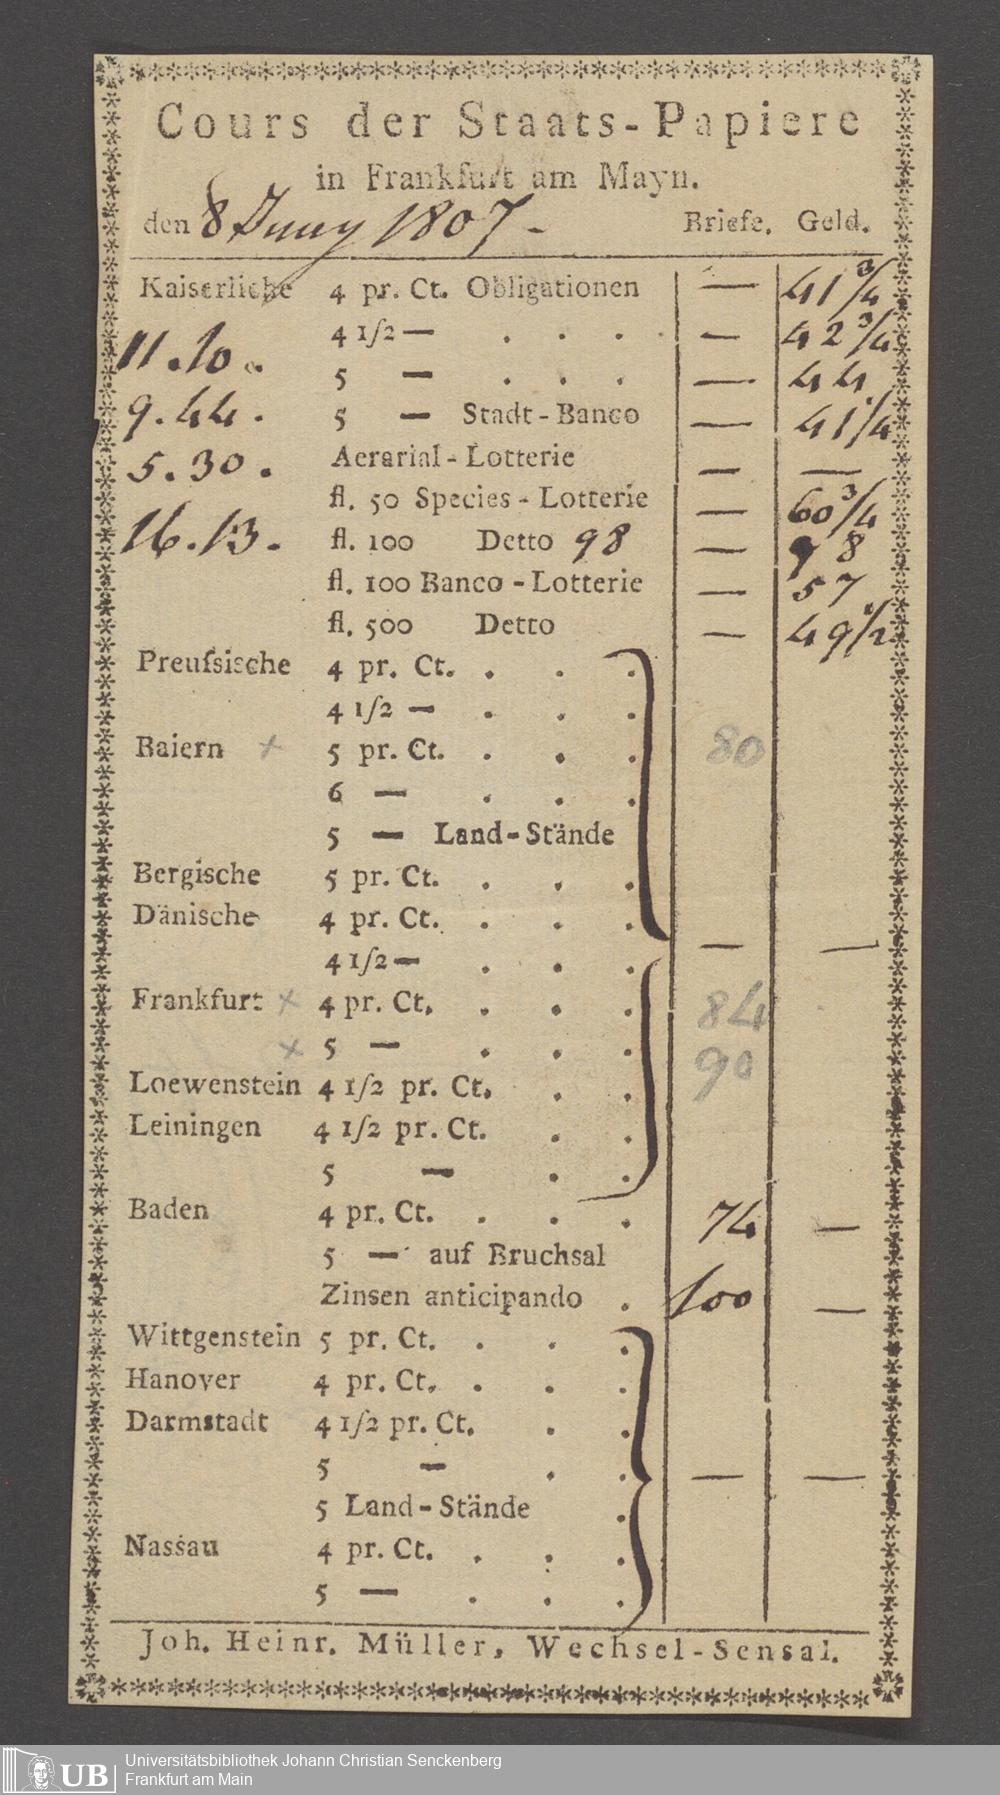 Cours der Staats-Papiere
in Frankfurt am Mayn.
den 8 Juny 1807 - Briefe. Geld.
Kaiserliche 4 pr. Ct. Obligationen — 41 3/4
4 1/2 — . . . — 42 3/4
11.10.
5 — . . . — 44
9.44. 5 — Stadt-Banco — 41 1/4
5.30. Aerarial-Lotterie — —
fl. 50 Species-Lotterie — 60 3/4
16.13. fl. 100 Detto 98 — 98
fl. 100 Banco-Lotterie — 57
fl. 500 Detto — 49 1/2
Preuſsische 4 pr. Ct. . . .
4 1/2 — . . .
Baiern × 5 pr. Ct. . . . 80
6 — . . .
5 — Land-Stände
Bergische 5 pr. Ct. . . .
Dänische 4 pr. Ct. . . . — —
4 1/2 — . . .
Frankfurt × 4 pr. Ct. . . . 84
× 5 — . . . 90
Loewenstein 4 1/2 pr. Ct. . .
Leiningen 4 1/2 pr. Ct. . .
5 — . .
Baden 4 pr. Ct. . . . 74 —
5 — auf Bruchsal
Zinsen anticipando . 100 —
Wittgenstein 5 pr. Ct. . . .
Hanover 4 pr. Ct. . . .
Darmstadt 4 1/2 pr. Ct. . .
5 — . . — —
5 Land-Stände .
Nassau 4 pr. Ct. . . .
5 — . . .
Joh. Heinr. Müller, Wechsel-Sensal.
UB
Universitätsbibliothek Johann Christian Senckenberg
Frankfurt am Main